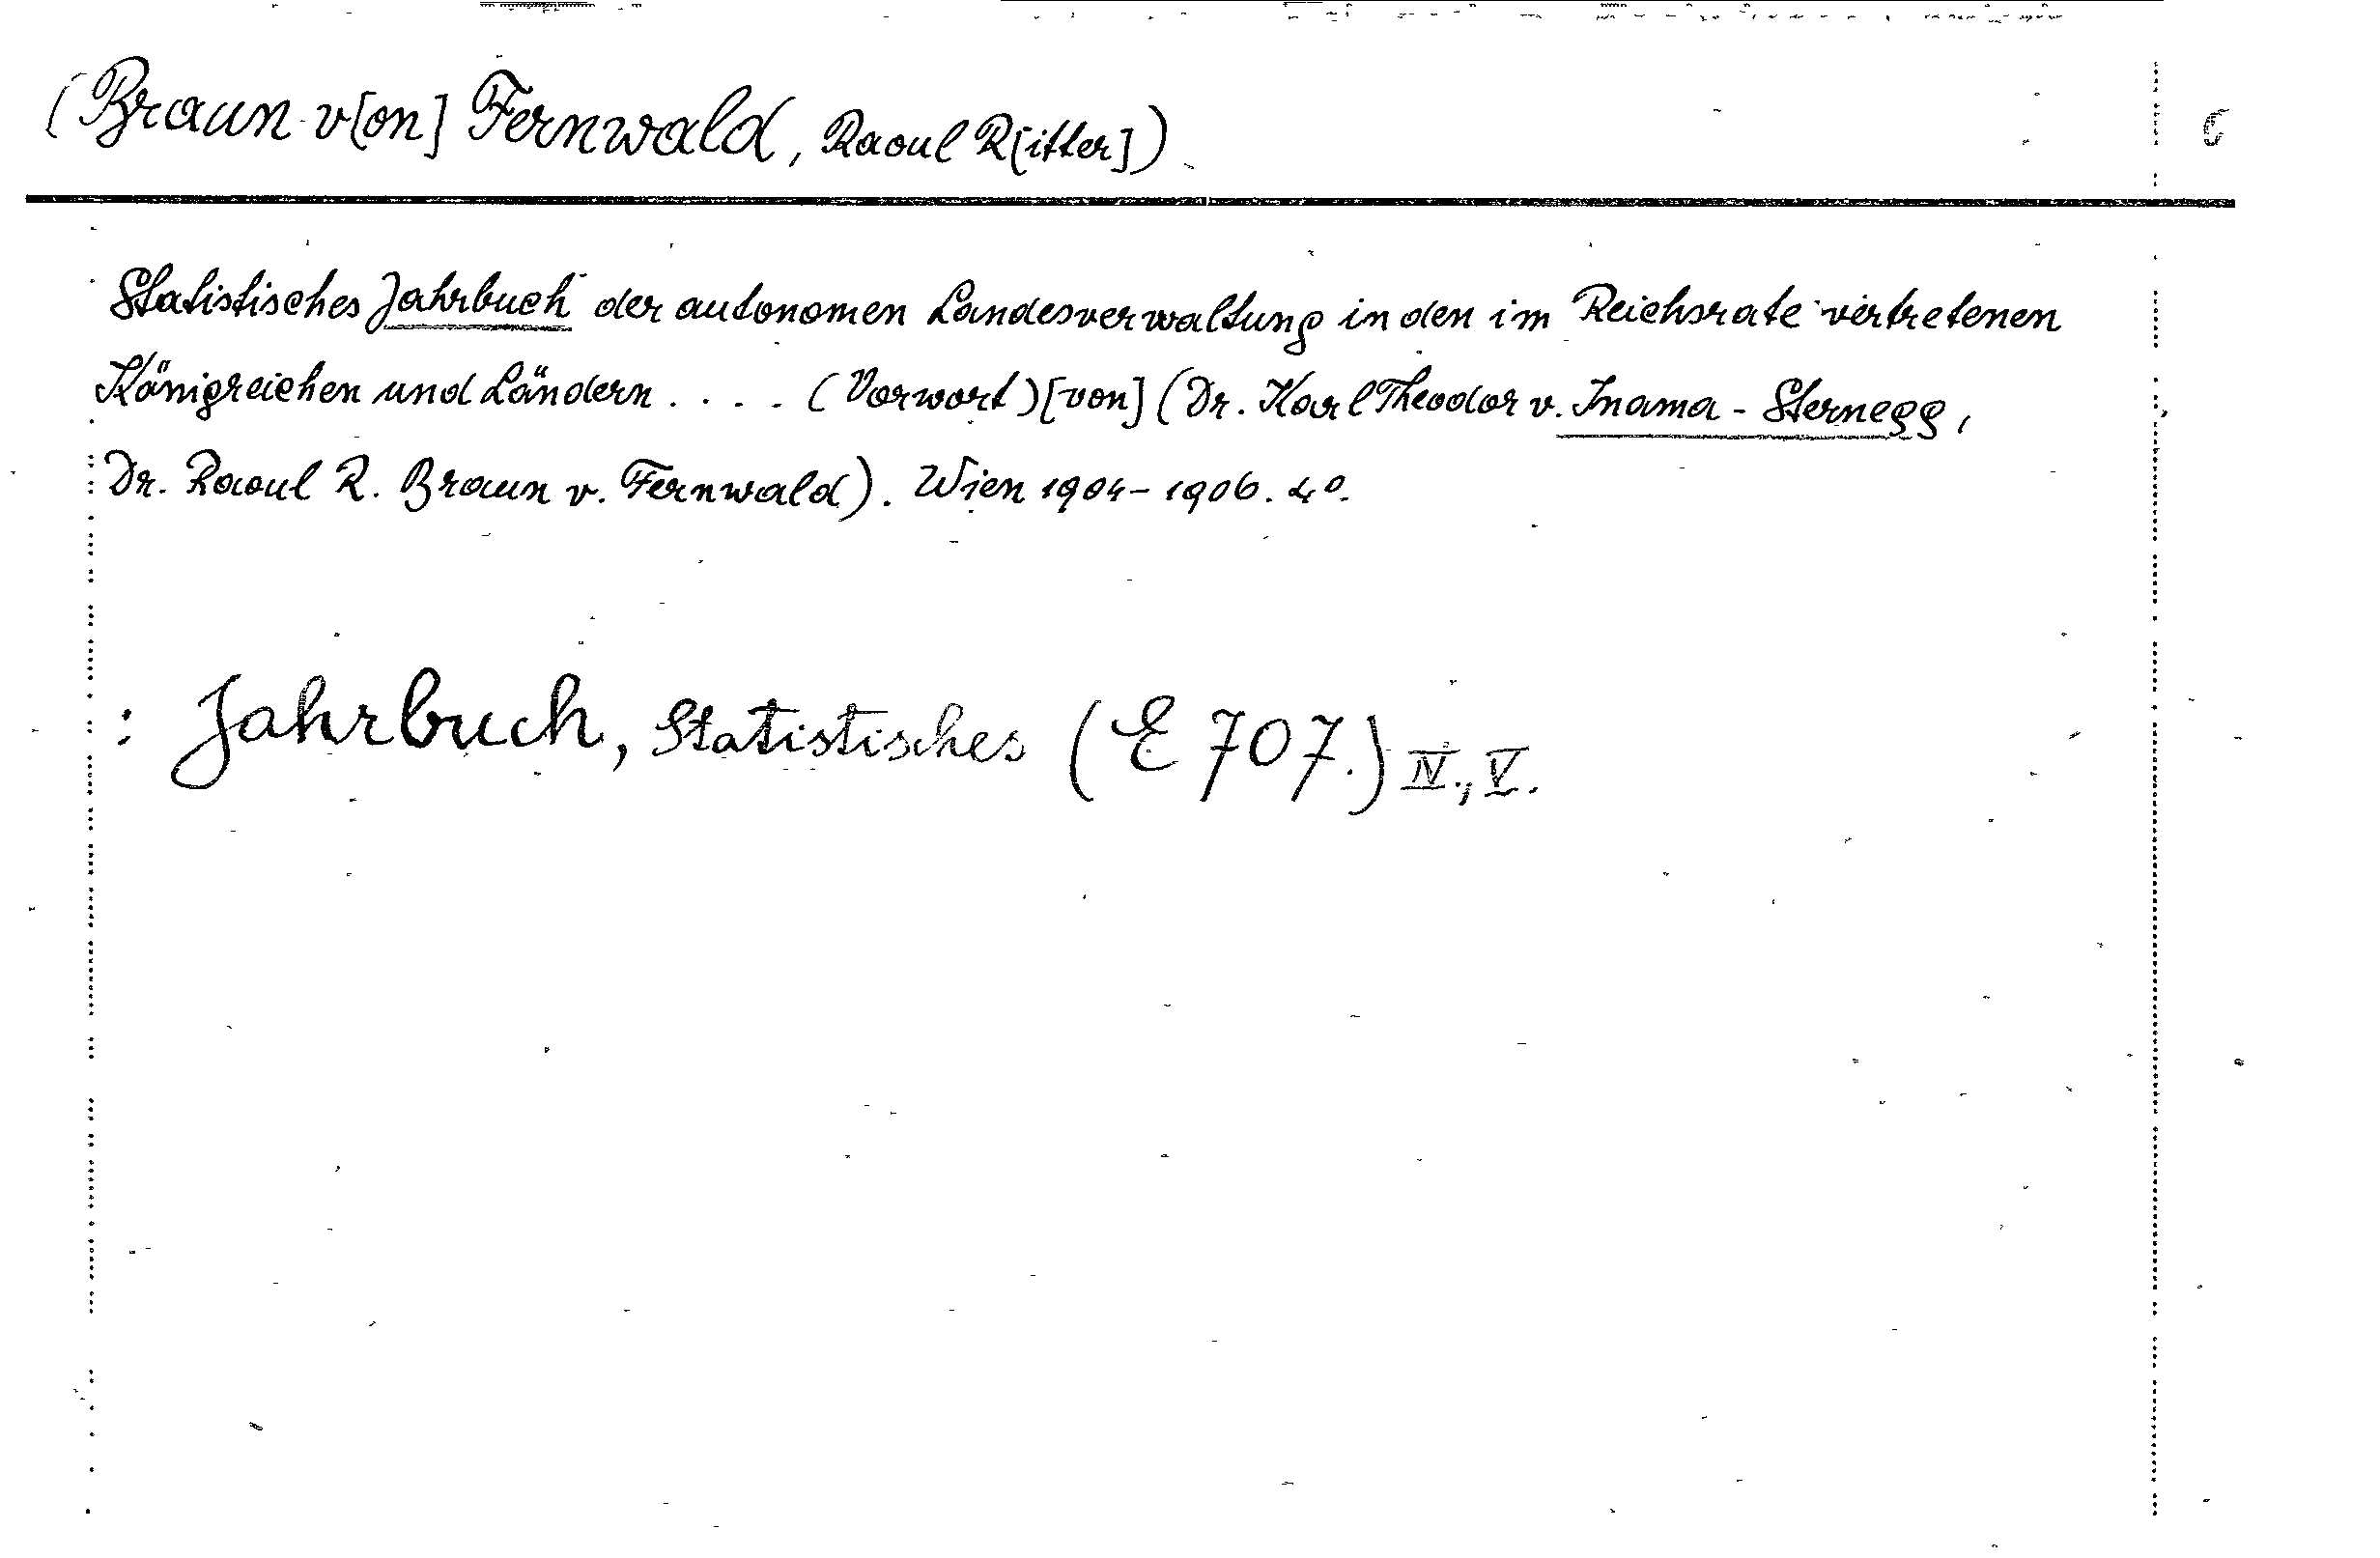 (Braun v[on] Fernwald, Raoul R[itter])
Statistisches Jahrbuch der autonomen Landesverwaltung in den im Reichsrate vertretenen
Königreichen und Ländern .... (Vorwort) [von] (Dr. Karl Theodor v. Inama-Sternegg,
Dr. Raoul R. Braun v. Fernwald). Wien 1904-1906. 4°.
: Jahrbuch, Statistisches (E 707.) IV., V.